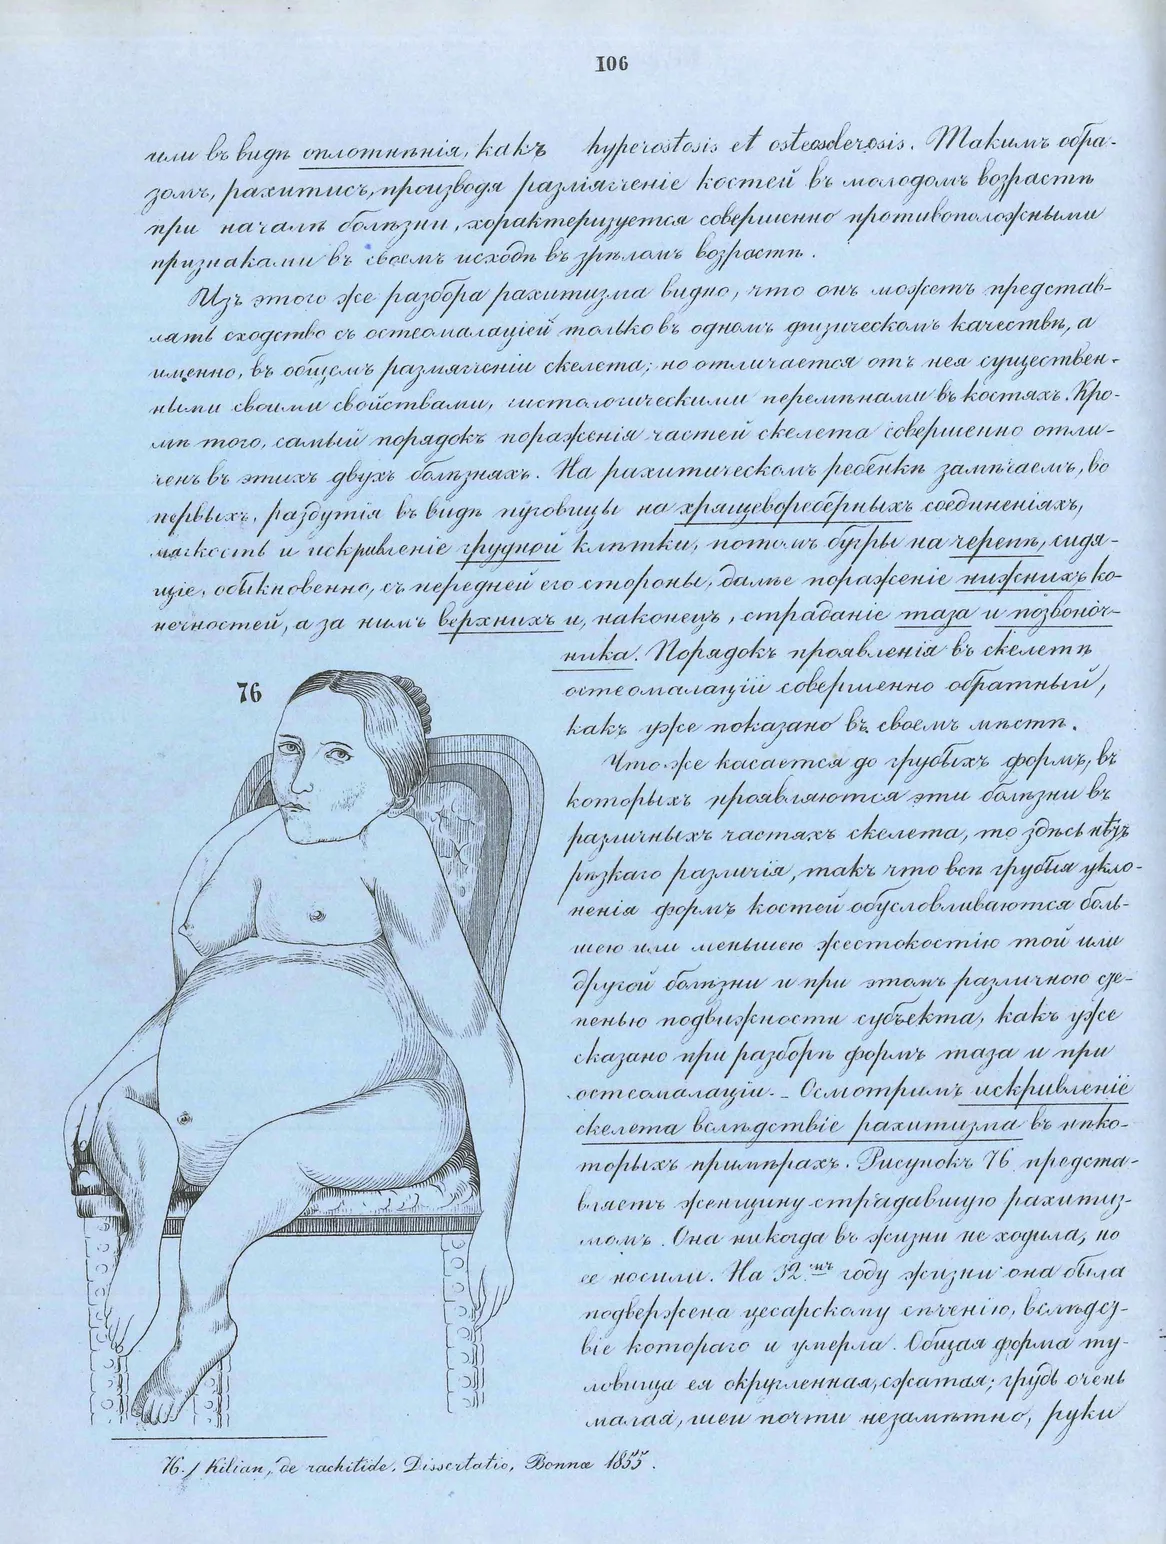 106
или въ видѣ оплотнѣнія, какъ hyperostosis et osteosclerosis. Такимъ обра-
зомъ, рахитисъ, производя размягченіе костей въ молодомъ возрастѣ
при началѣ болѣзни, характеризуется совершенно противоположными
признаками въ своемъ исходѣ въ зрѣломъ возрастѣ.
Изъ этого же разбора рахитизма видно, что онъ можетъ представ-
лять сходство съ остеомалаціей только въ одномъ физическомъ качествѣ, а
именно, въ общемъ размягченіи скелета; но отличается отъ нея существен-
ными своими свойствами, гистологическими перемѣнами въ костяхъ. Кро-
мѣ того, самый порядокъ пораженія частей скелета совершенно отли-
ченъ въ этихъ двухъ болѣзняхъ. На рахитическомъ ребенкѣ замѣчаемъ, во
первыхъ, раздутія въ видѣ пуговицы на хрящевореберныхъ соединеніяхъ,
мягкость и искривленіе грудной клѣтки, потомъ бугры на черепѣ, сидя-
щіе, обыкновенно, съ передней его стороны, далѣе пораженіе нижнихъ ко-
нечностей, а за нимъ верхнихъ и, наконецъ, страданіе таза и позвоноч-
ника. Порядокъ проявленія въ скелетѣ
остеомалаціи совершенно обратный,
какъ уже показано въ своемъ мѣстѣ.
76
Что же касается до грубыхъ формъ, въ
которыхъ проявляются эти болѣзни въ
различныхъ частяхъ скелета, то здѣсь нѣтъ
рѣзкаго различія, такъ что всѣ грубыя укло-
ненія формъ костей обусловливаются боль-
шею или меньшею жестокостію той или
другой болѣзни и при этомъ различною сте-
пенью подвижности субъекта, какъ уже
сказано при разборѣ формъ таза и при
остеомалаціи. – Осмотримъ искривленіе
скелета вслѣдствіе рахитизма въ нѣко-
торыхъ примѣрахъ. Рисунокъ 76 предста-
вляетъ женщину страдавшую рахитиз-
момъ. Она никогда въ жизни не ходила, но
ее носили. На 32мъ году жизни она была
подвержена цесарскому сѣченію, вслѣдст-
віе котораго и умерла. Общая форма ту-
ловища ея округленная, сжатая; грудь очень
малая, шеи почти незамѣтно, руки
76.) Kilian, de rachitide, Dissertatio, Bonnæ 1855.